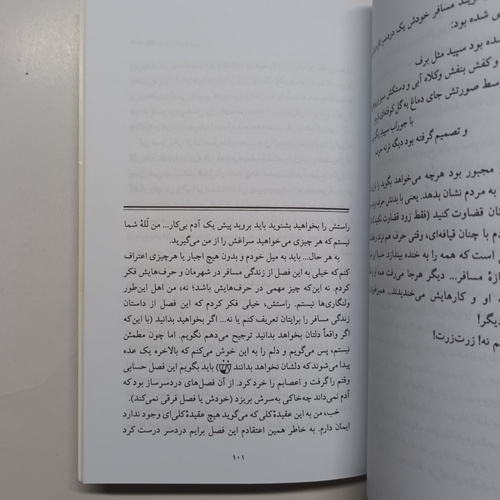 راستش را بخواهید بشنوید باید بروید پیش یک آدم بی‌کار... من لَلهٔ شما
نیستم که هر چیزی می‌خواهید سراغش را از من می‌گیرید.
به هر حال... باید به میل خودم و بدون هیچ اجبار یا هرچیزی اعتراف
کنم که خیلی به این فصل از زندگی مسافر در شهرمان و حرف‌هایش فکر
کردم. نه این‌که چیز مهمی در حرف‌هایش باشد؛ نه، من اهل این‌طور
ولنگاری‌ها نیستم. راستش، خیلی فکر کردم که این فصل از داستان
زندگی مسافر را برایتان تعریف کنم یا نه... اگر بخواهید بدانید (با این‌که
اگر واقعاً دلتان بخواهد بدانید ترجیح می‌دهم نگویم. اما چون مطمئن
نیستم، پس می‌گویم و دلم را به این خوش می‌کنم که بالاخره یک عده
پیدا می‌شوند که دلشان نخواهد بدانند) باید بگویم این فصل حسابی
وقتم را گرفت و اعصابم را خرد کرد. از آن فصل‌های دردسرساز بود که
آدم نمی‌داند چه‌خاکی به‌سرش بریزد (خودش یا فصل فرقی نمی‌کند).
خب، من به این عقیدهٔ کلی که می‌گوید هیچ عقیدهٔ کلی‌ای وجود ندارد
ایمان دارم. به خاطر همین اعتقادم این فصل برایم دردسر درست کرد
۱۰۱
مسافر خودش یک دردسر
ی شده بود:
شده بود سپید مثل برف
وکفش بنفش وکلاه آبی و دستکش
وسط صورتش جای دماغ یه‌گل
با جوراب سپید
و تصمیم گرفته بود دیگه نزنه حرف
مجبور بود هرچه می‌خواهد بگوید را
به مردم نشان بدهد. یعنی با بدنش حرف
قضاوت کنید (فقط زود قضاوت
با چنان قیافه‌ای، وقتی حرف هم
است که همه را به خنده بیندازد.
مسافر... دیگر هرجا می‌رفت همه
او و کارهایش می‌خندیدند.
دیگر!
نه! زرت‌زرت!